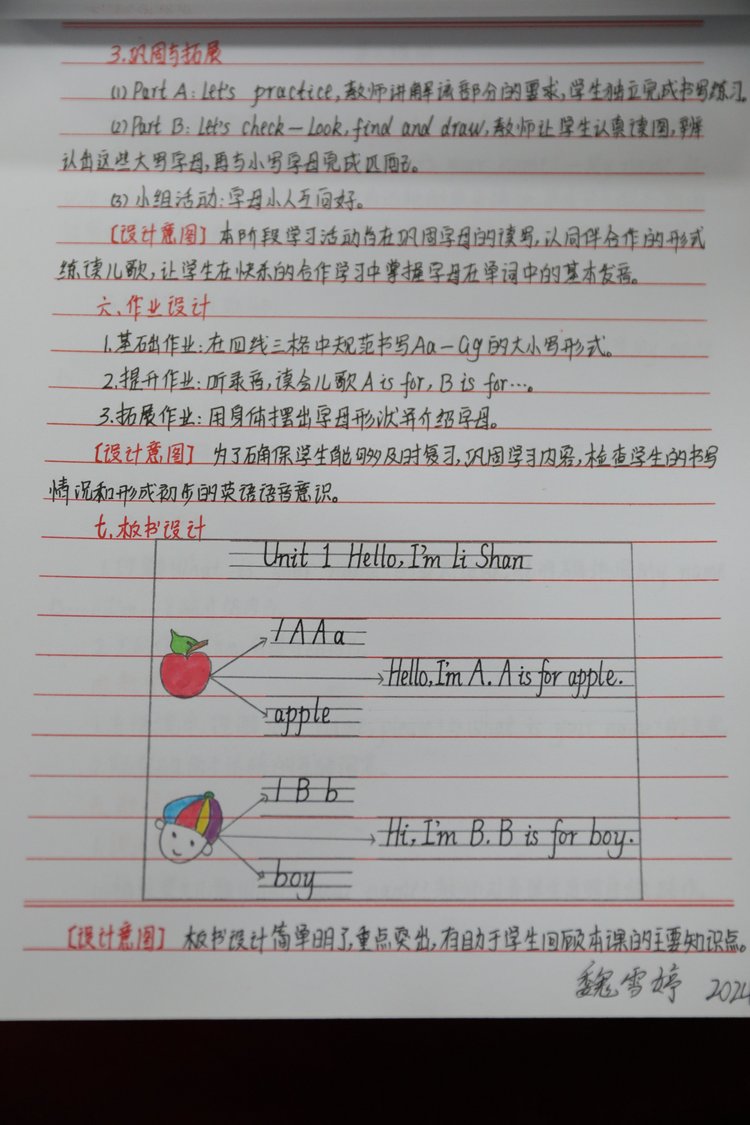 3.巩固与拓展
(1) Part A: Let's practice,教师讲解该部分的要求,学生独立完成书写练习。
(2) Part B: Let's check—Look, find and draw,教师让学生认真读图,辨
认出这些大写字母,再与小写字母完成匹配。
(3) 小组活动:字母小人互问好。
【设计意图】本阶段学习活动旨在巩固字母的读写,以同伴合作的形式
练读儿歌,让学生在快乐的合作学习中掌握字母在单词中的基本发音。
六、作业设计
1.基础作业:在四线三格中规范书写Aa—Gg的大小写形式。
2.提升作业:听录音,读会儿歌A is for, B is for…。
3.拓展作业:用身体摆出字母形状并介绍字母。
【设计意图】为了确保学生能够及时复习,巩固学习内容,检查学生的书写
情况和形成初步的英语语音意识。
七、板书设计
Unit 1 Hello, I'm Li Shan
/ A A a
Hello, I'm A. A is for apple.
apple
/ B b
Hi, I'm B. B is for boy.
boy
【设计意图】板书设计简单明了,重点突出,有助于学生回顾本课的主要知识点。
魏雪婷 2024